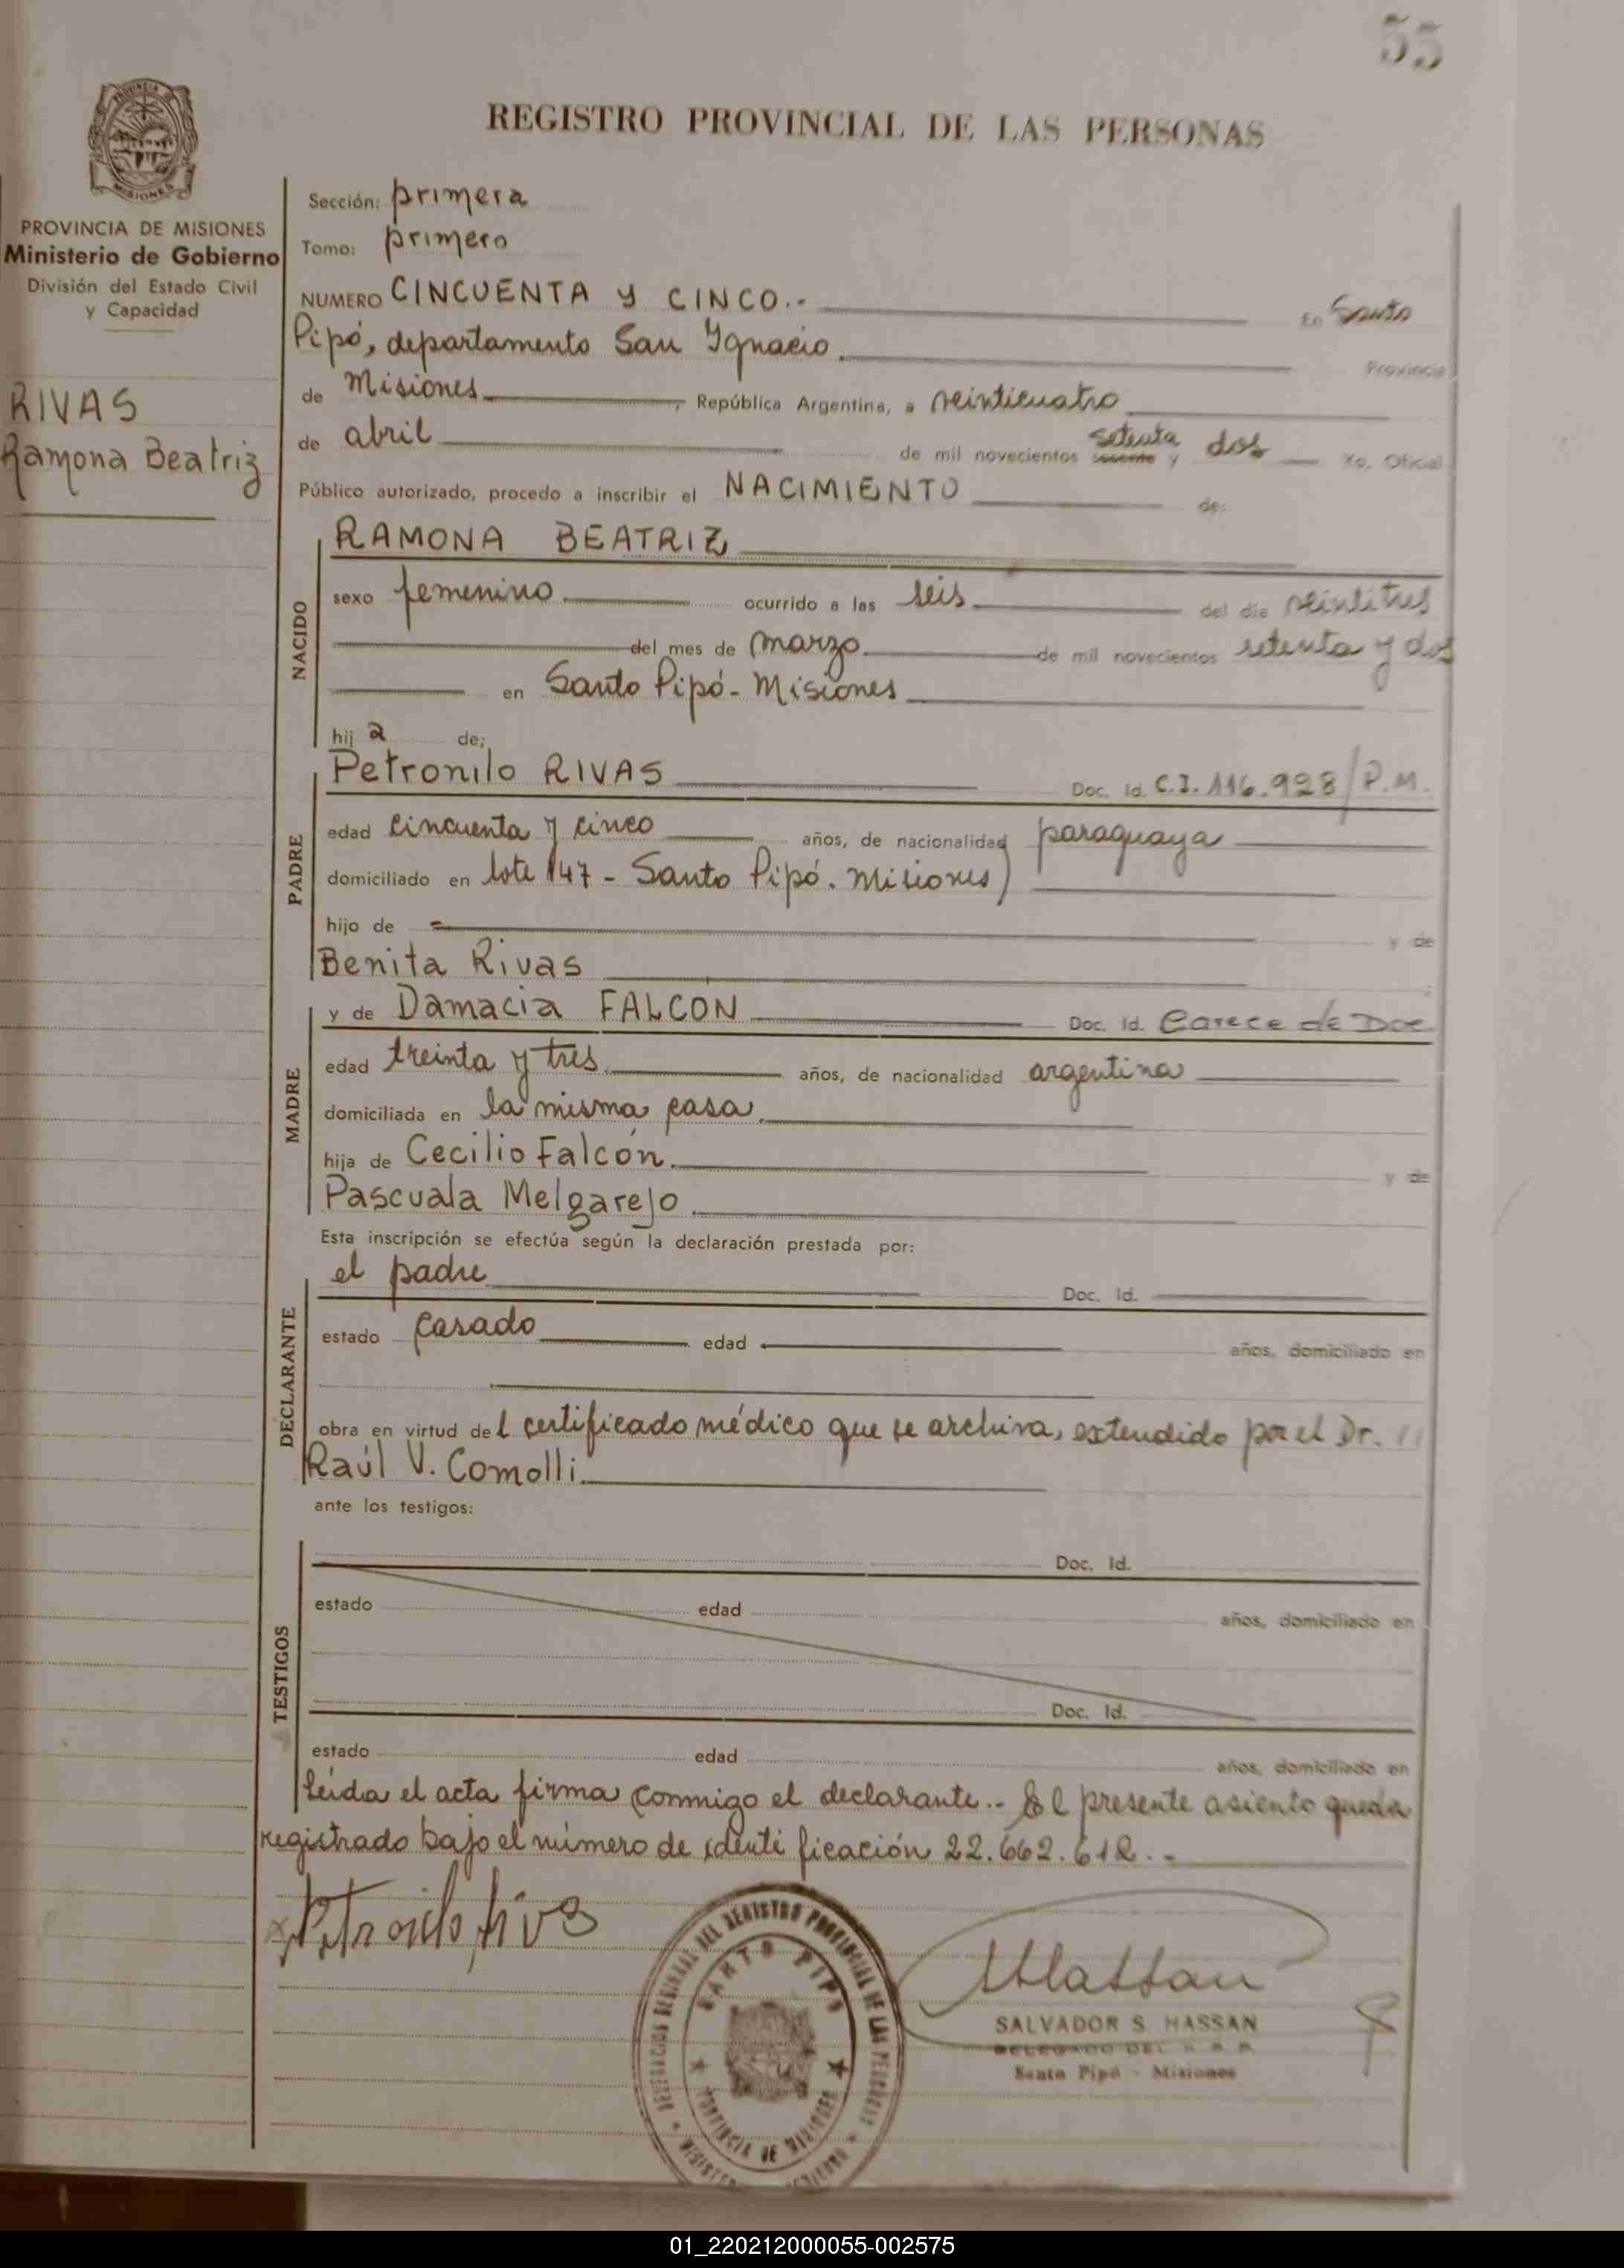 55
REGISTRO PROVINCIAL DE LAS PERSONAS
PROVINCIA DE MISIONES
Ministerio de Gobierno
División del Estado Civil
y Capacidad
RIVAS
Ramona Beatriz
Sección: primera
Tomo: primero
NUMERO CINCUENTA y CINCO.- En Santo
Pipó, departamento San Ignacio. Provincia
de Misiones, República Argentina, a veinticuatro
de abril de mil novecientos sesenta setenta y dos Yo, Oficial
Público autorizado, procedo a inscribir el NACIMIENTO de:
NACIDO
RAMONA BEATRIZ
sexo femenino. ocurrido a las seis. del día veintitres
del mes de marzo. de mil novecientos setenta y dos
en Santo Pipó - Misiones
hija de;
PADRE
Petronilo RIVAS Doc. Id. C.I. 116.928/P.M.
edad cincuenta y cinco años, de nacionalidad paraguaya
domiciliado en lote 147 - Santo Pipó. Misiones)
hijo de - y de
Benita Rivas
MADRE
y de Damacia FALCON Doc. Id. Carece de Doc
edad treinta y tres. años, de nacionalidad argentina
domiciliada en la misma casa.
hija de Cecilio Falcón. y de
Pascuala Melgarejo.
Esta inscripción se efectúa según la declaración prestada por:
DECLARANTE
el padre Doc. Id.
estado casado edad años, domiciliado en
obra en virtud del certificado médico que se archiva, extendido por el Dr.
Raúl V. Comolli.
ante los testigos:
TESTIGOS
Doc. Id.
estado edad años, domiciliado en
Doc. Id.
estado edad años, domiciliado en
Leída el acta firma conmigo el declarante.- El presente asiento queda
registrado bajo el número de identificación 22.662.612.-
DELEGACION REGIONAL DEL REGISTRO PROVINCIAL DE LAS PERSONAS
SANTO PIPO
PROVINCIA DE MISIONES
SALVADOR S. HASSAN
DELEGADO DEL R. P. P.
Santo Pipó - Misiones
01_220212000055-002575